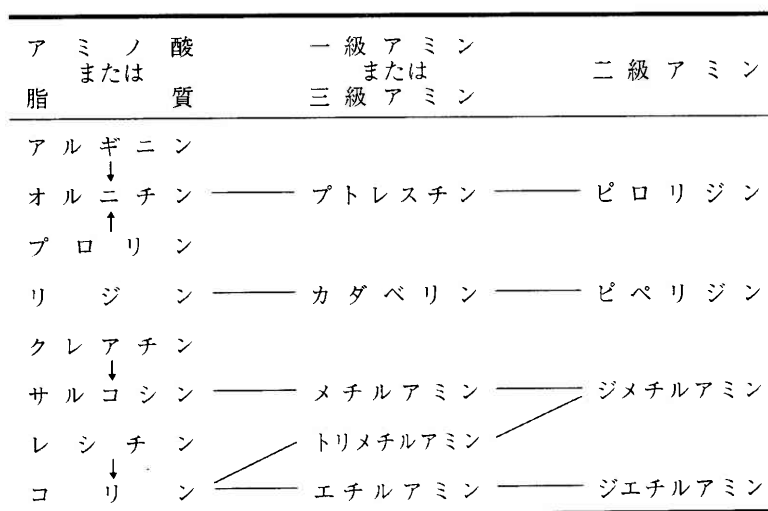 アミノ酸 一級アミン
または または 二級アミン
脂質 三級アミン
アルギニン
オルニチン プトレスチン ピロリジン
プロリン
リジン カダベリン ピペリジン
クレアチン
サルコシン メチルアミン ジメチルアミン
レシチン トリメチルアミン
コリン エチルアミン ジエチルアミン